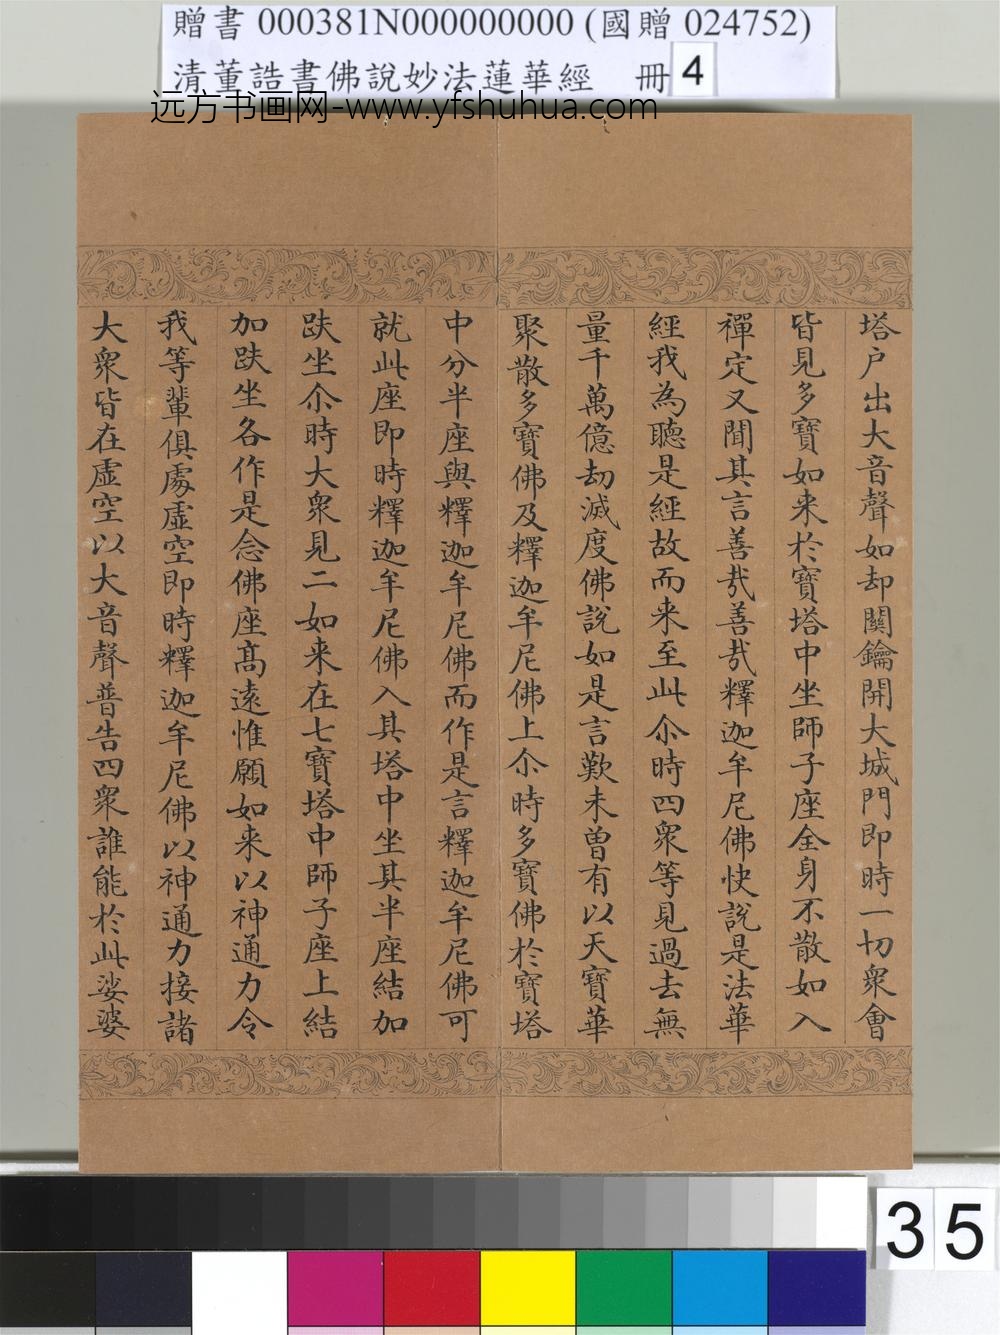 贈書 000381N000000000 (國贈 024752)
清董誥書佛說妙法蓮華經 冊 4
远方书画网-www.yfshuhua.com
塔户出大音聲如却關鑰開大城門即時一切衆會
皆見多寶如来於寶塔中坐師子座全身不散如入
禪定又聞其言善㢤善㢤釋迦牟尼佛快說是法華
經我為聽是經故而来至此尒時四衆等見過去無
量千萬億劫滅度佛說如是言歎未曽有以天寶華
聚散多寶佛及釋迦牟尼佛上尒時多寶佛於寶塔
中分半座與釋迦牟尼佛而作是言釋迦牟尼佛可
就此座即時釋迦牟尼佛入其塔中坐其半座結加
趺坐尒時大衆見二如来在七寶塔中師子座上結
加趺坐各作是念佛座髙遠惟願如来以神通力令
我等輩俱處虛空即時釋迦牟尼佛以神通力接諸
大衆皆在虛空以大音聲普告四衆誰能於此娑婆
35